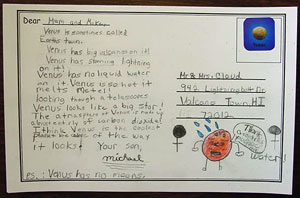 Dear Mom and Mike,
Venus is sometimes called
Earths twin.
Venus has big volcanoes on it!
Venus has storming lightning
on it!
Venus has no liquid water
on it Venus is so hot it
melts metel!
looking though a telascope
Venus looks like a big star!
The atmosphere of Venus is made up
of carbon dioxide!
I think Venus is the coolest
of the way
it looks! Your son,
michael
P.S.: Venus has no moons.
Mr & Mrs. Cloud
942 Lightning bolt Dr.
Volcano Town, HI
72012
water!